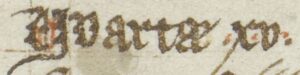 Quartæ .xv.